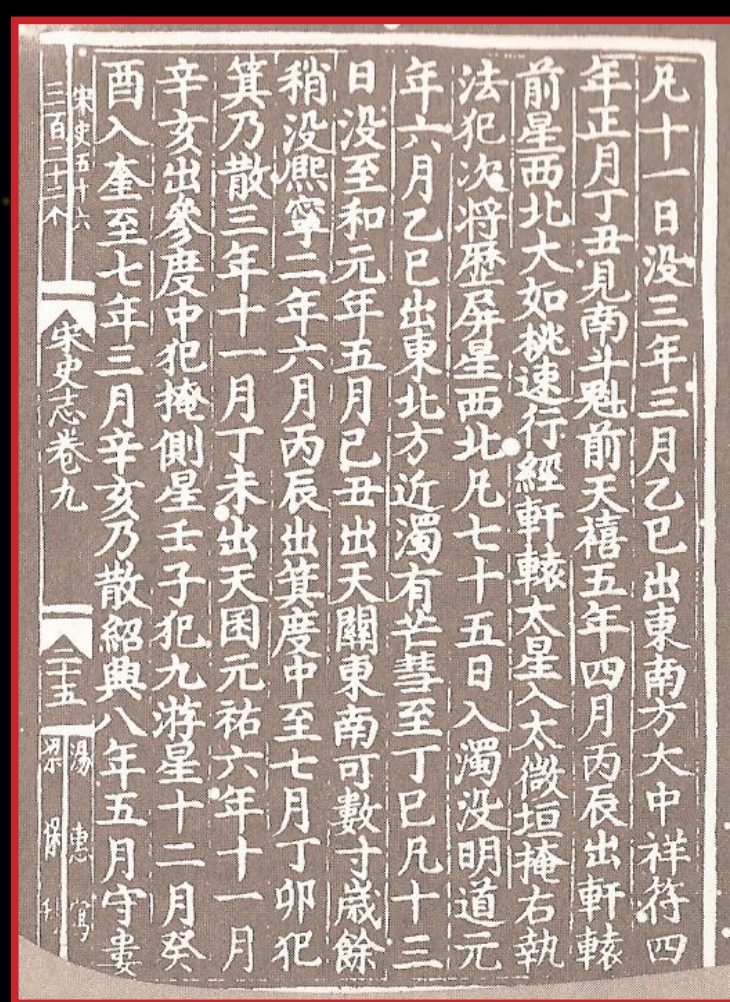 凡十一日没三年三月乙巳出東南方大中祥符四
年正月丁丑見南斗魁前天禧五年四月丙辰出軒轅
前星西北大如桃速行經軒轅太星入太微垣掩右執
法犯次将歷屏星西北凡七十五日入濁没明道元
年六月乙巳出東北方近濁有芒彗至丁巳凡十三
日没至和元年五月己丑出天關東南可數寸歳餘
稍没熈寧二年六月丙辰出箕度中至七月丁卯犯
箕乃散三年十一月丁未出天囷元祐六年十一月
辛亥出參度中犯掩側星壬子犯九斿星十二月癸
酉入奎至七年三月辛亥乃散紹興八年五月守婁
宋史五十六
三百二十二个
宋史志卷九
二十五
湯惠寫
梁保